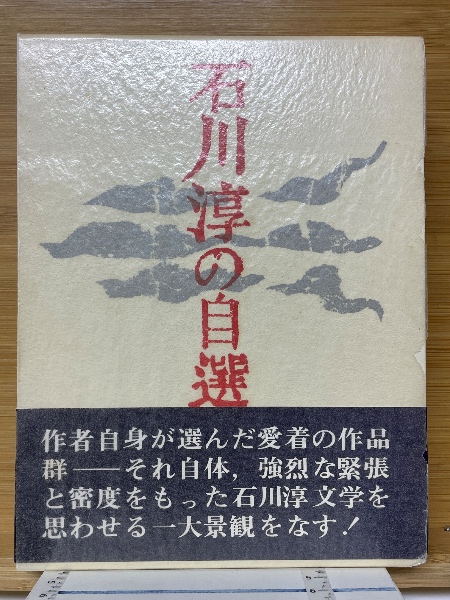 石川淳の自選
作者自身が選んだ愛着の作品
群――それ自体，強烈な緊張
と密度をもった石川淳文学を
思わせる一大景観をなす！